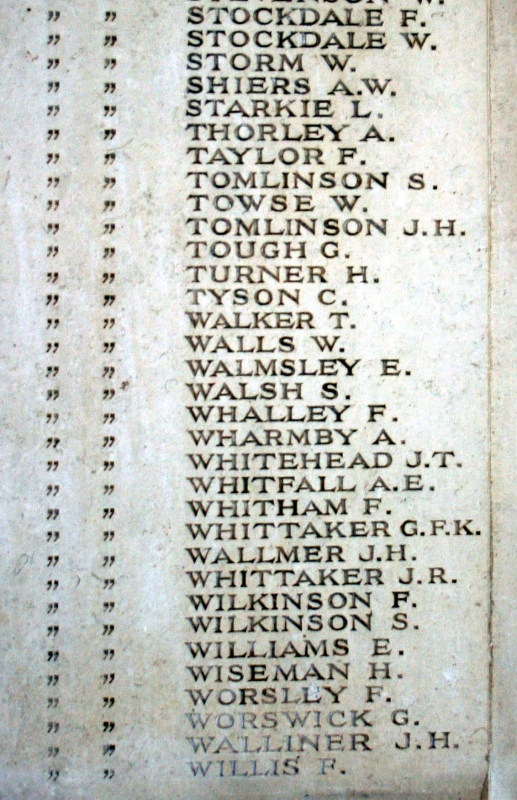 " " STEVENSON W.
" " STOCKDALE F.
" " STOCKDALE W.
" " STORM W.
" " SHIERS A.W.
" " STARKIE L.
" " THORLEY A.
" " TAYLOR F.
" " TOMLINSON S.
" " TOWSE W.
" " TOMLINSON J.H.
" " TOUGH G.
" " TURNER H.
" " TYSON C.
" " WALKER T.
" " WALLS W.
" " WALMSLEY E.
" " WALSH S.
" " WHALLEY F.
" " WHARMBY A.
" " WHITEHEAD J.T.
" " WHITFALL A.E.
" " WHITHAM F.
" " WHITTAKER G.F.K.
" " WALLMER J.H.
" " WHITTAKER J.R.
" " WILKINSON F.
" " WILKINSON S.
" " WILLIAMS E.
" " WISEMAN H.
" " WORSLEY F.
" " WORSWICK G.
" " WALLINER J.H.
" " WILLIS F.